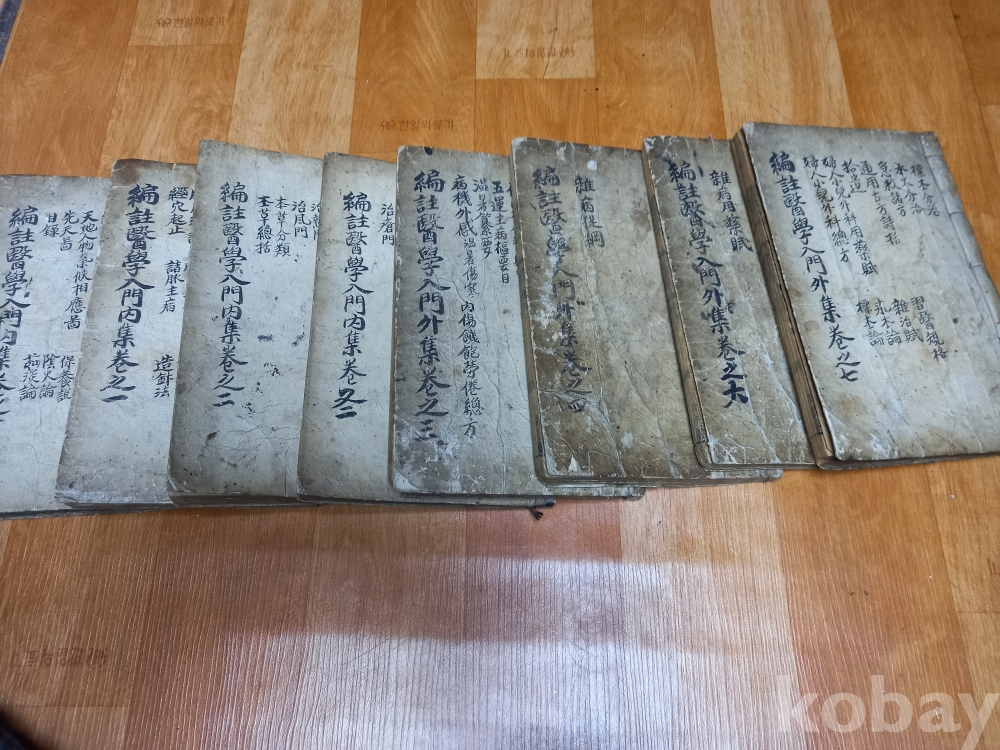 編註醫學入門內集卷之
天地人物氣候相應啚
先天啚
目錄
保養說
陰火論
編註醫學入門內集卷一
經穴起止
諸脉主病
造鍼法
編註醫學入門內集卷之二
治風門
本草分類
本草總括
編註醫學入門內集卷之二
治瘡門
編註醫學入門外集卷之三
五運主病樞要目
溫暑纂要
病機外感溫暑傷寒內傷饑飽勞倦總方
編註醫學入門外集卷之四
雜病提綱
編註醫學入門外集卷之六
雜病用藥賦
編註醫學入門外集卷之七
標本分治
水火分治
急救諸方
通用古方詩括
拾遺
婦人小兒外科用藥賦
婦人小兒外科總方
習醫規格
雜治賦
標本論
kobay